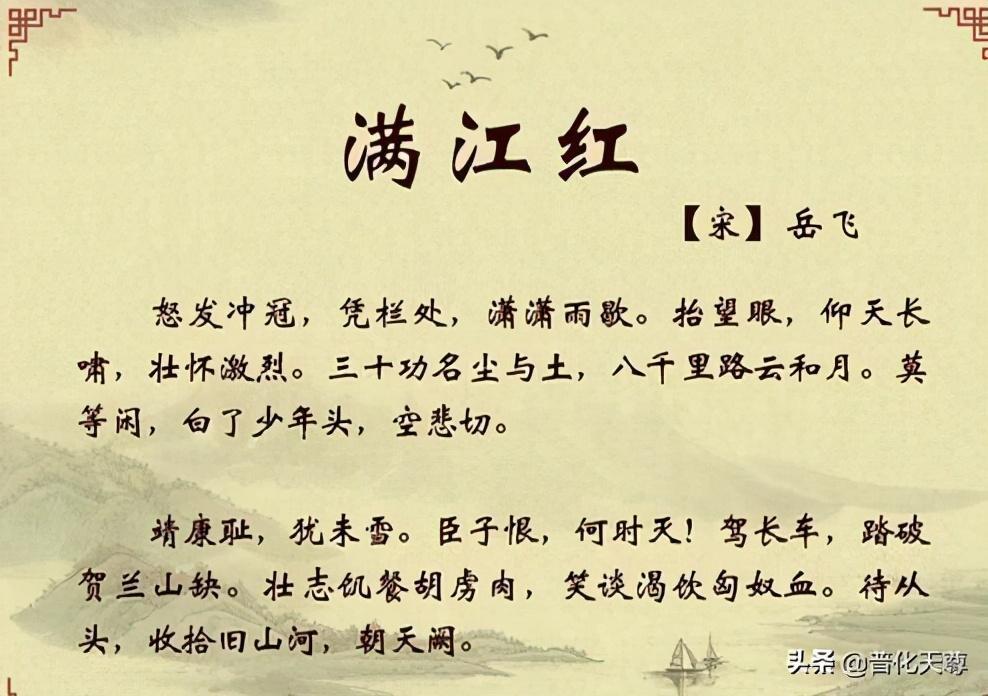 满江红
【宋】岳飞
怒发冲冠，凭栏处，潇潇雨歇。抬望眼，仰天长
啸，壮怀激烈。三十功名尘与土，八千里路云和月。莫
等闲，白了少年头，空悲切。
靖康耻，犹未雪。臣子恨，何时灭！驾长车，踏破
贺兰山缺。壮志饥餐胡虏肉，笑谈渴饮匈奴血。待从
头，收拾旧山河，朝天阙。
头条 @普化天尊